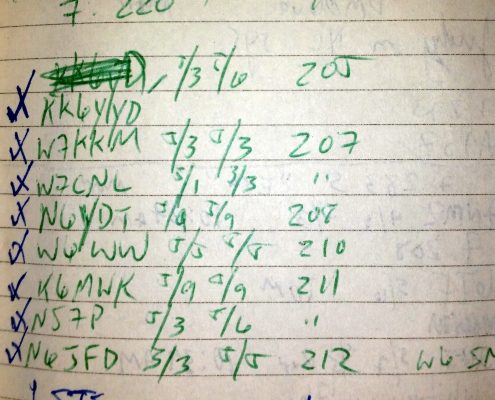 7. 220
5/3 5/6 205
KK6YYD
W7KKM 5/3 5/3 207
W7CNL 5/1 3/3 "
N6YDT 5/9 5/9 208
W6WW 5/5 5/5 210
K6MWK 5/9 5/9 211
NS7P 5/3 5/6 "
N6JFD 3/3 5/5 212 W6